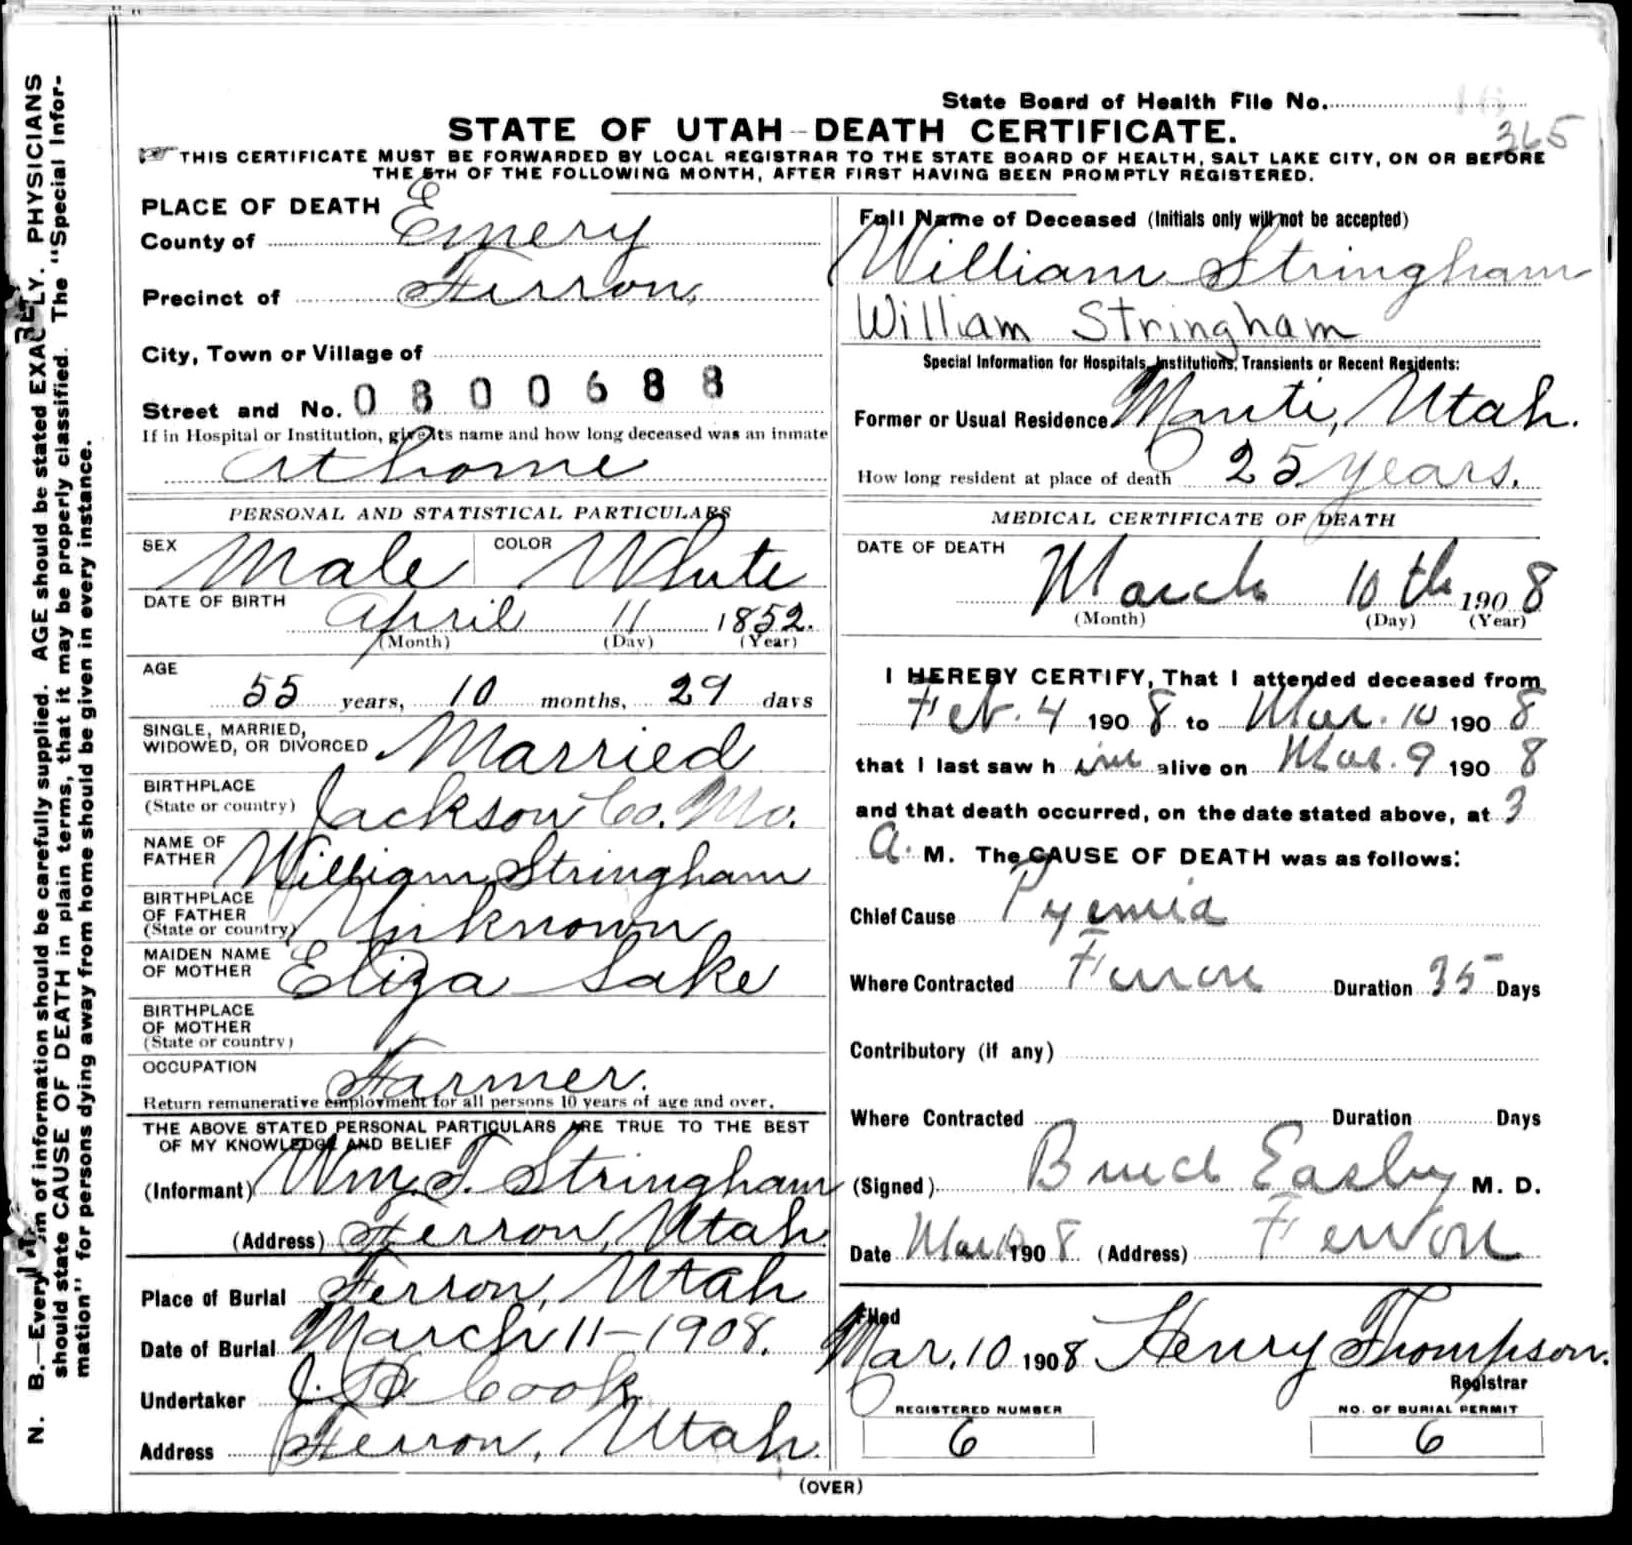 State Board of Health File No.
365
STATE OF UTAH - DEATH CERTIFICATE.
THIS CERTIFICATE MUST BE FORWARDED BY LOCAL REGISTRAR TO THE STATE BOARD OF HEALTH, SALT LAKE CITY, ON OR BEFORE
THE 5TH OF THE FOLLOWING MONTH, AFTER FIRST HAVING BEEN PROMPTLY REGISTERED.
N. B.—Every item of information should be carefully supplied. AGE should be stated EXACTLY. PHYSICIANS
should state CAUSE OF DEATH in plain terms, that it may be properly classified. The "Special Infor-
mation" for persons dying away from home should be given in every instance.
PLACE OF DEATH
County of Emery
Precinct of Ferron,
City, Town or Village of
Street and No. 0800688
If in Hospital or Institution, give its name and how long deceased was an inmate
at home
PERSONAL AND STATISTICAL PARTICULARS
SEX Male COLOR White
DATE OF BIRTH April 11 1852.
(Month) (Day) (Year)
AGE
55 years, 10 months, 29 days
SINGLE, MARRIED,
WIDOWED, OR DIVORCED Married
BIRTHPLACE
(State or country) Jackson Co. Mo.
NAME OF
FATHER William Stringham
BIRTHPLACE
OF FATHER
(State or country) Unknown
MAIDEN NAME
OF MOTHER Eliza Lake
BIRTHPLACE
OF MOTHER
(State or country)
OCCUPATION Farmer.
Return remunerative employment for all persons 10 years of age and over.
THE ABOVE STATED PERSONAL PARTICULARS ARE TRUE TO THE BEST
OF MY KNOWLEDGE AND BELIEF
(Informant) Wm. T. Stringham
(Address) Ferron, Utah.
Place of Burial Ferron, Utah
Date of Burial March 11-1908.
Undertaker J. Cook
Address Ferron, Utah.
Full Name of Deceased (Initials only will not be accepted)
William Stringham
William Stringham
Special Information for Hospitals, Institutions, Transients or Recent Residents:
Former or Usual Residence Manti, Utah.
How long resident at place of death 25 years.
MEDICAL CERTIFICATE OF DEATH
DATE OF DEATH
March 10th 1908
(Month) (Day) (Year)
I HEREBY CERTIFY, That I attended deceased from
Feb. 4 1908 to Mar. 10 1908
that I last saw him alive on Mar. 9 1908
and that death occurred, on the date stated above, at 3
a. M. The CAUSE OF DEATH was as follows:
Chief Cause Pyemia
Where Contracted Ferron Duration 35 Days
Contributory (if any)
Where Contracted Duration Days
(Signed) Easley M. D.
Date Mar 1908 (Address) Ferron
Filed
Mar. 10 1908 Henry Thompson.
Registrar
REGISTERED NUMBER NO. OF BURIAL PERMIT
6 6
(OVER)